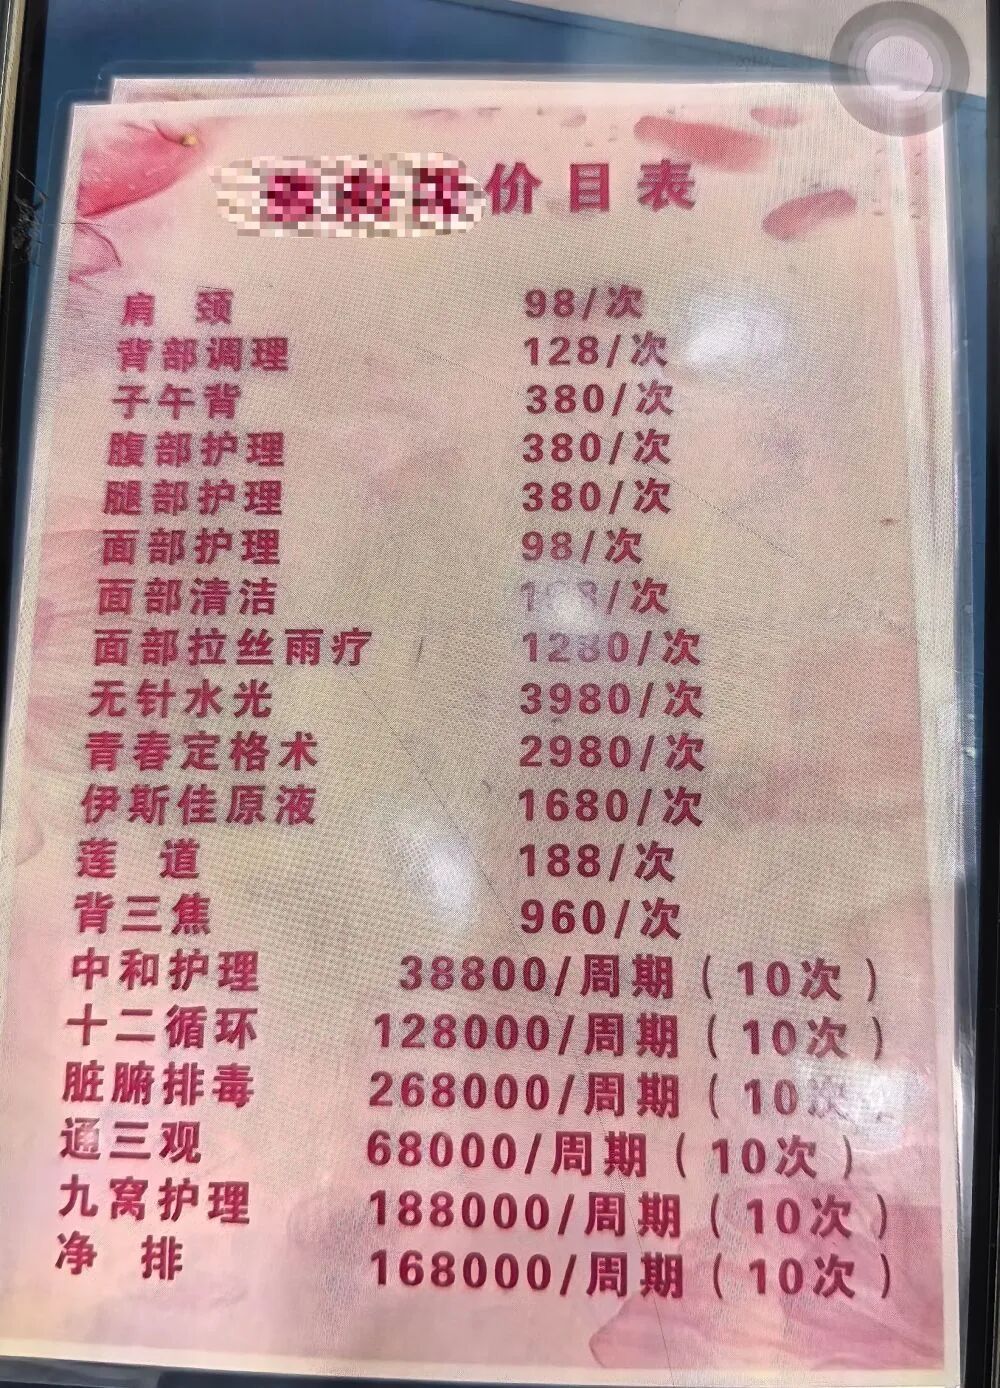 价目表
肩 颈 98/次
背部调理 128/次
子午背 380/次
腹部护理 380/次
腿部护理 380/次
面部护理 98/次
面部清洁 /次
面部拉丝雨疗 1280/次
无针水光 3980/次
青春定格术 2980/次
伊斯佳原液 1680/次
莲 道 188/次
背三焦 960/次
中和护理 38800/周期(10次)
十二循环 128000/周期(10次)
脏腑排毒 268000/周期(10次)
通三观 68000/周期(10次)
九窝护理 188000/周期(10次)
净 排 168000/周期(10次)